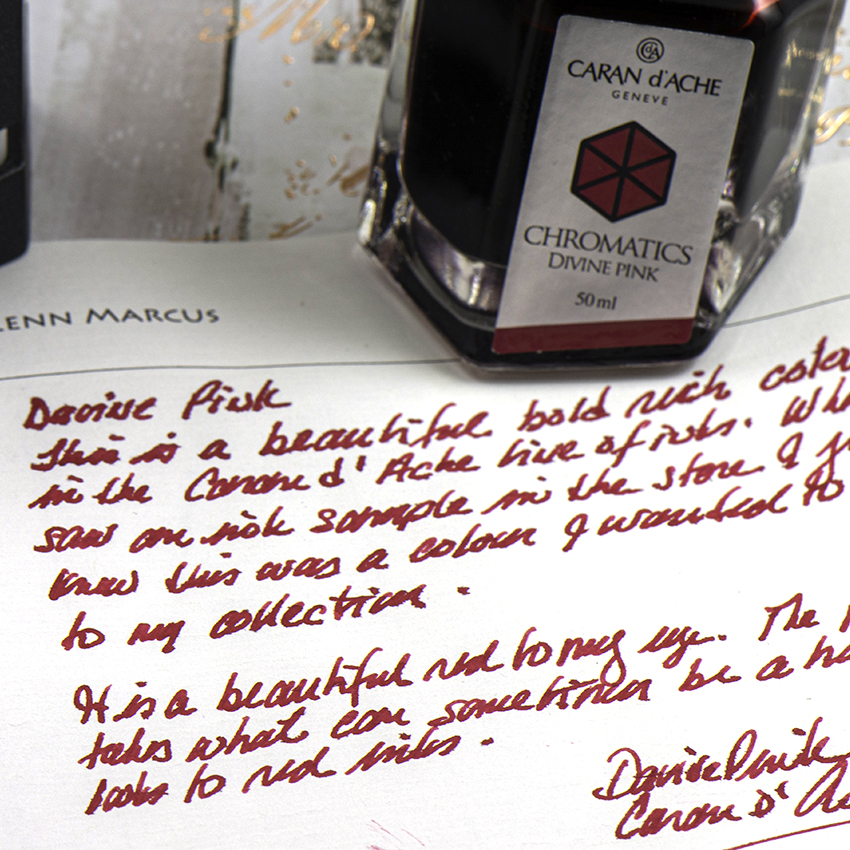 CdA
CARAN d'ACHE
GENEVE
CHROMATICS
DIVINE PINK
50 ml
LENN MARCUS
Divine Pink
This is a beautiful bold rich colou
in the Caran d'Ache line of inks. Wh
saw an ink sample in the store I
knew this was a colour I wanted to
to my collection.
It is a beautiful red to my eye. The
takes what can sometimes be a ha
looks to red inks.
Divine Pink
Caran d'A